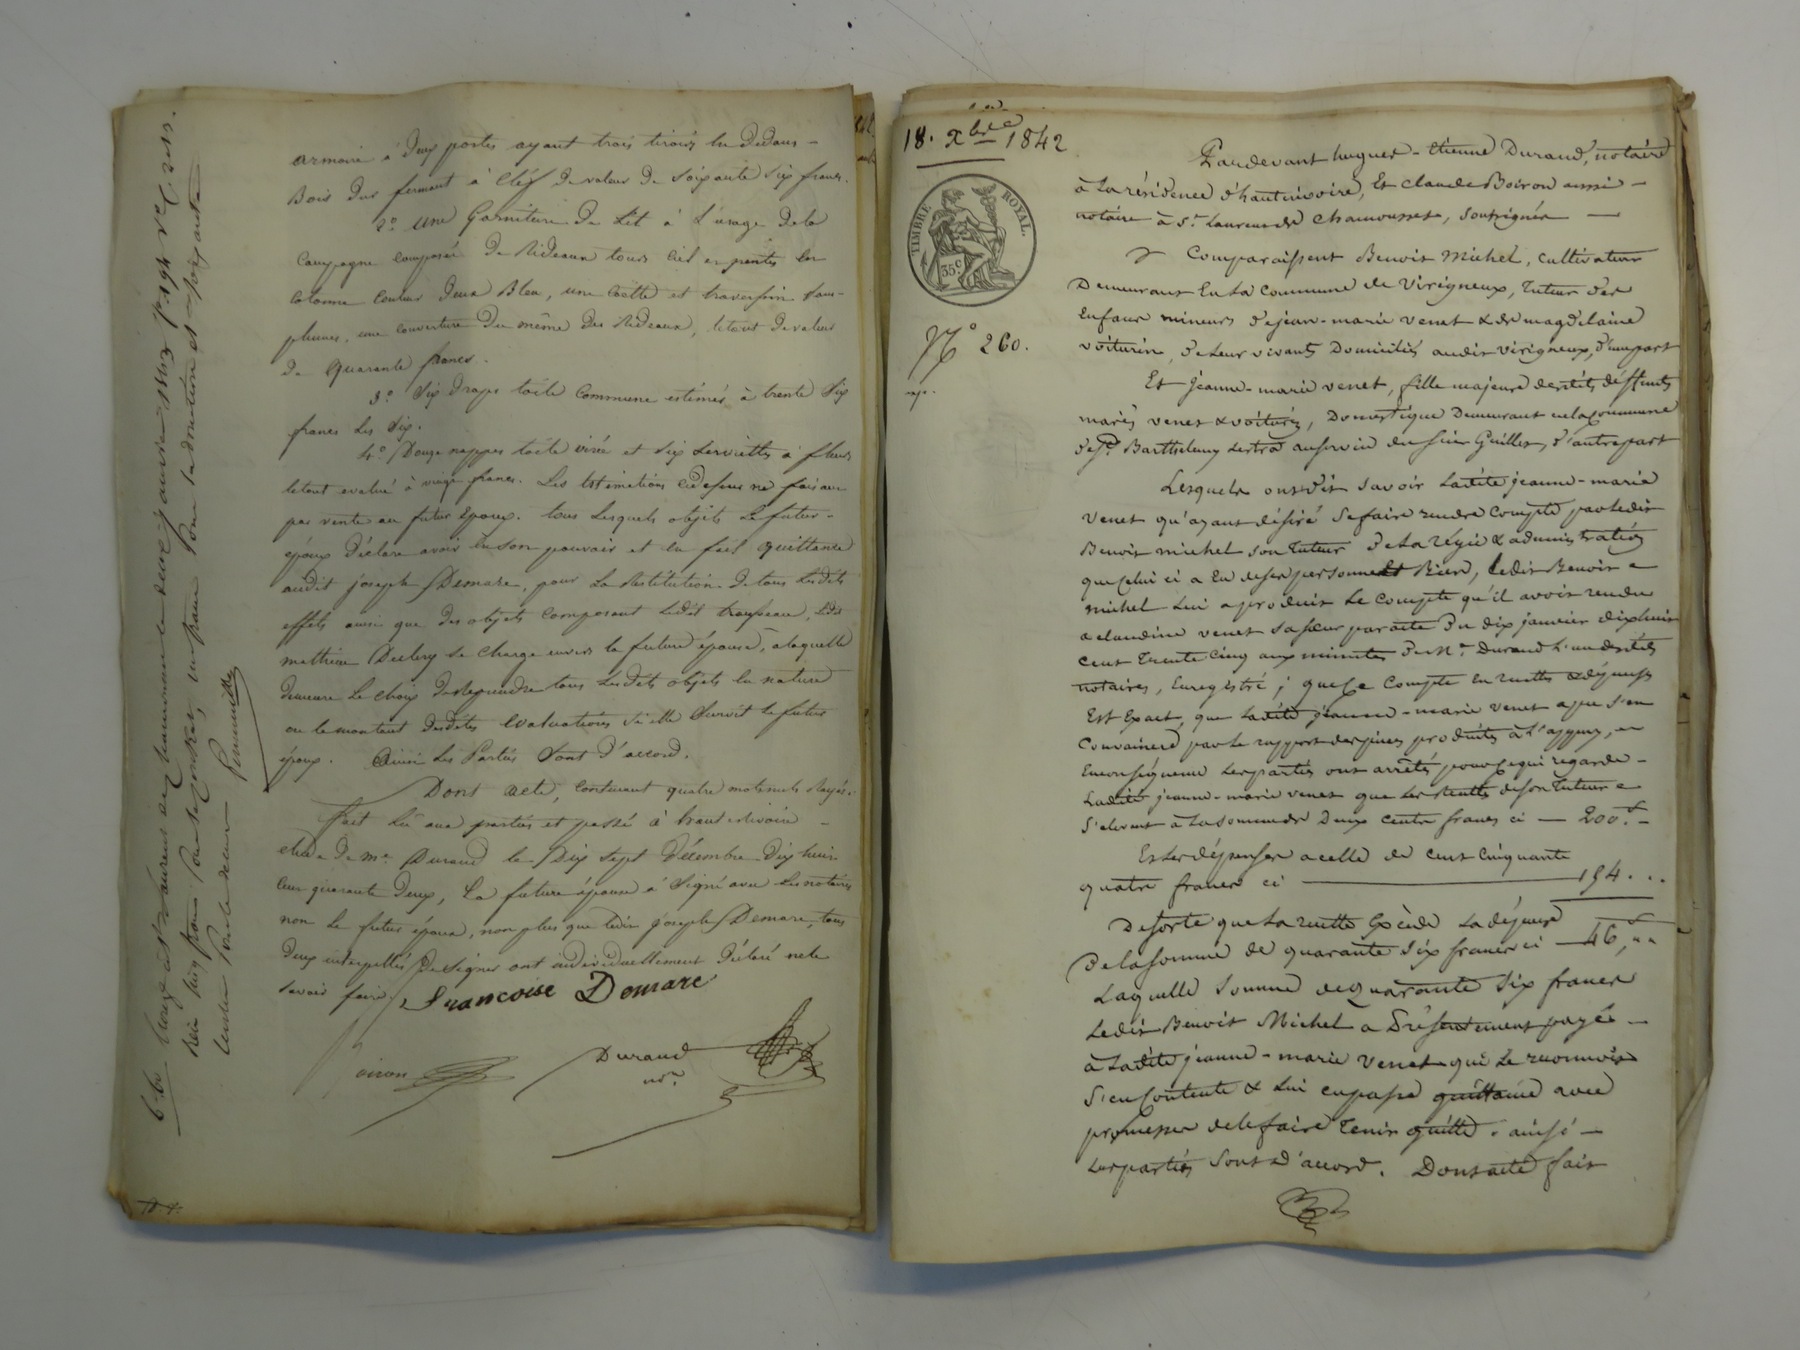 armoire à Deux portes ayant trois tiroirs en dedans -
Bois dur fermant à Clef De valeur De soixante six francs.
2.° une Garniture De Lit à l'usage De la
Campagne composée De Rideaux tours Ciel en pentes en
cotonne couleur Deux Bleu, une Coette et traversin Sans-
plumes, une couverture Du même Des Rideaux, letout De valeur
De quarante francs.
3.° Six Draps toile Commune estimés à trente Six
francs Les Six.
4.° Douze nappes toile et Six Serviettes à fleurs
letout evalué à vingt francs. Les Estimations cidessus ne faisant
pas vente au futur Epoux. tous Lesquels objets Le futur-
époux Déclare avoir en son pouvoir et en fait quittance
audit joseph Demare, pour La Restitution De tous Lesdits
effets ainsi que Des objets composant Ledit trousseau, Ledit
mathieu se Charge envers la future épouse, à laquelle
Demeure Le choix De Reprendre tous Lesdits objets en nature
ou le montant Desdites Evaluations Si elle Survit le futur
époux. Ainsi Les Parties Sont D'accord.
Dont acte, contenant quatre mots nuls Rayés.
fait Lu aux parties et passé à hauterivoire -
etude De me Durand le Dix Sept Décembre Dix huit
Cent quarante Deux, La future épouse à Signé avec Les notaires
non Le futur époux, non plus que Ledit joseph Demare, tous
Deux interpellés De Signer ont individuellement Déclaré nele
savoir faire,
Françoise Demare
Boiron
Durand
nre
18. Xbre 1842
TIMBRE ROYAL.
35c
N° 260.
exp.
Pardevant hugues-Etienne Durand, notaire
à La résidence d'hauterivoire, Et Claude Boiron aussi -
notaire à St. Laurent de Chamousset, Soussignés —
Comparaissent Benoit Michel, cultivateur
Demeurant En La Commune de Virigneux, Tuteur des
Enfans mineurs de jean-marie venet & de magdelaine
voiturin, de Leur vivant Domiciliés audit virigneux, d'une part
Et jeanne-marie venet, fille majeure desdits déffunts
mariés venet & voiturin, Domestique Demeurant en la Commune
de St. Barthelemy Lestra au Service du Sieur Guillet, d'autre part
Lesquels ont dit Savoir Ladite jeanne-marie
Venet qu'ayant désiré Se faire rendre Compte par Ledit
Benoit michel son Tuteur De La régie & administration
que Celui ci a Eu de ses personne Et Biens, Ledit Benoit
michel Lui a produit Le Compte qu'il avoit rendu
a Claudine venet Sa Sœur par acte Du dix janvier dix huit
Cent Trente Cinq aux minutes De Me. Durand L'un desdits
notaires, Enregistré ; que Ce Compte En recettes & dépenses
Est Exact, que Ladite jeanne-marie venet a pu S'en
Convaincre par Le rapport des pièces produites à L'appuy, en
Enconséquence Les parties ont arrêtés pour Ce qui regarde -
Ladite jeanne-marie venet que Les Recettes de son Tuteur
S'elevent à La Somme de Deux Cents francs ci — 200.f -
Et Les dépenses a celle de Cent Cinquante
quatre francs ci — 154. ..
De Sorte que La recette Excède La dépense
de la Somme de quarante Six francs ci — 46,f ..
Laquelle Somme de quarante Six francs
Ledit Benoit Michel a Présentement payée -
à Ladite jeanne-marie venet qui Le reconnoit
S'en Contente & Lui en passe quittance avec
promesse de Le faire Tenir quitte. ainsi -
Les parties Sont D'accord. Dont acte fait